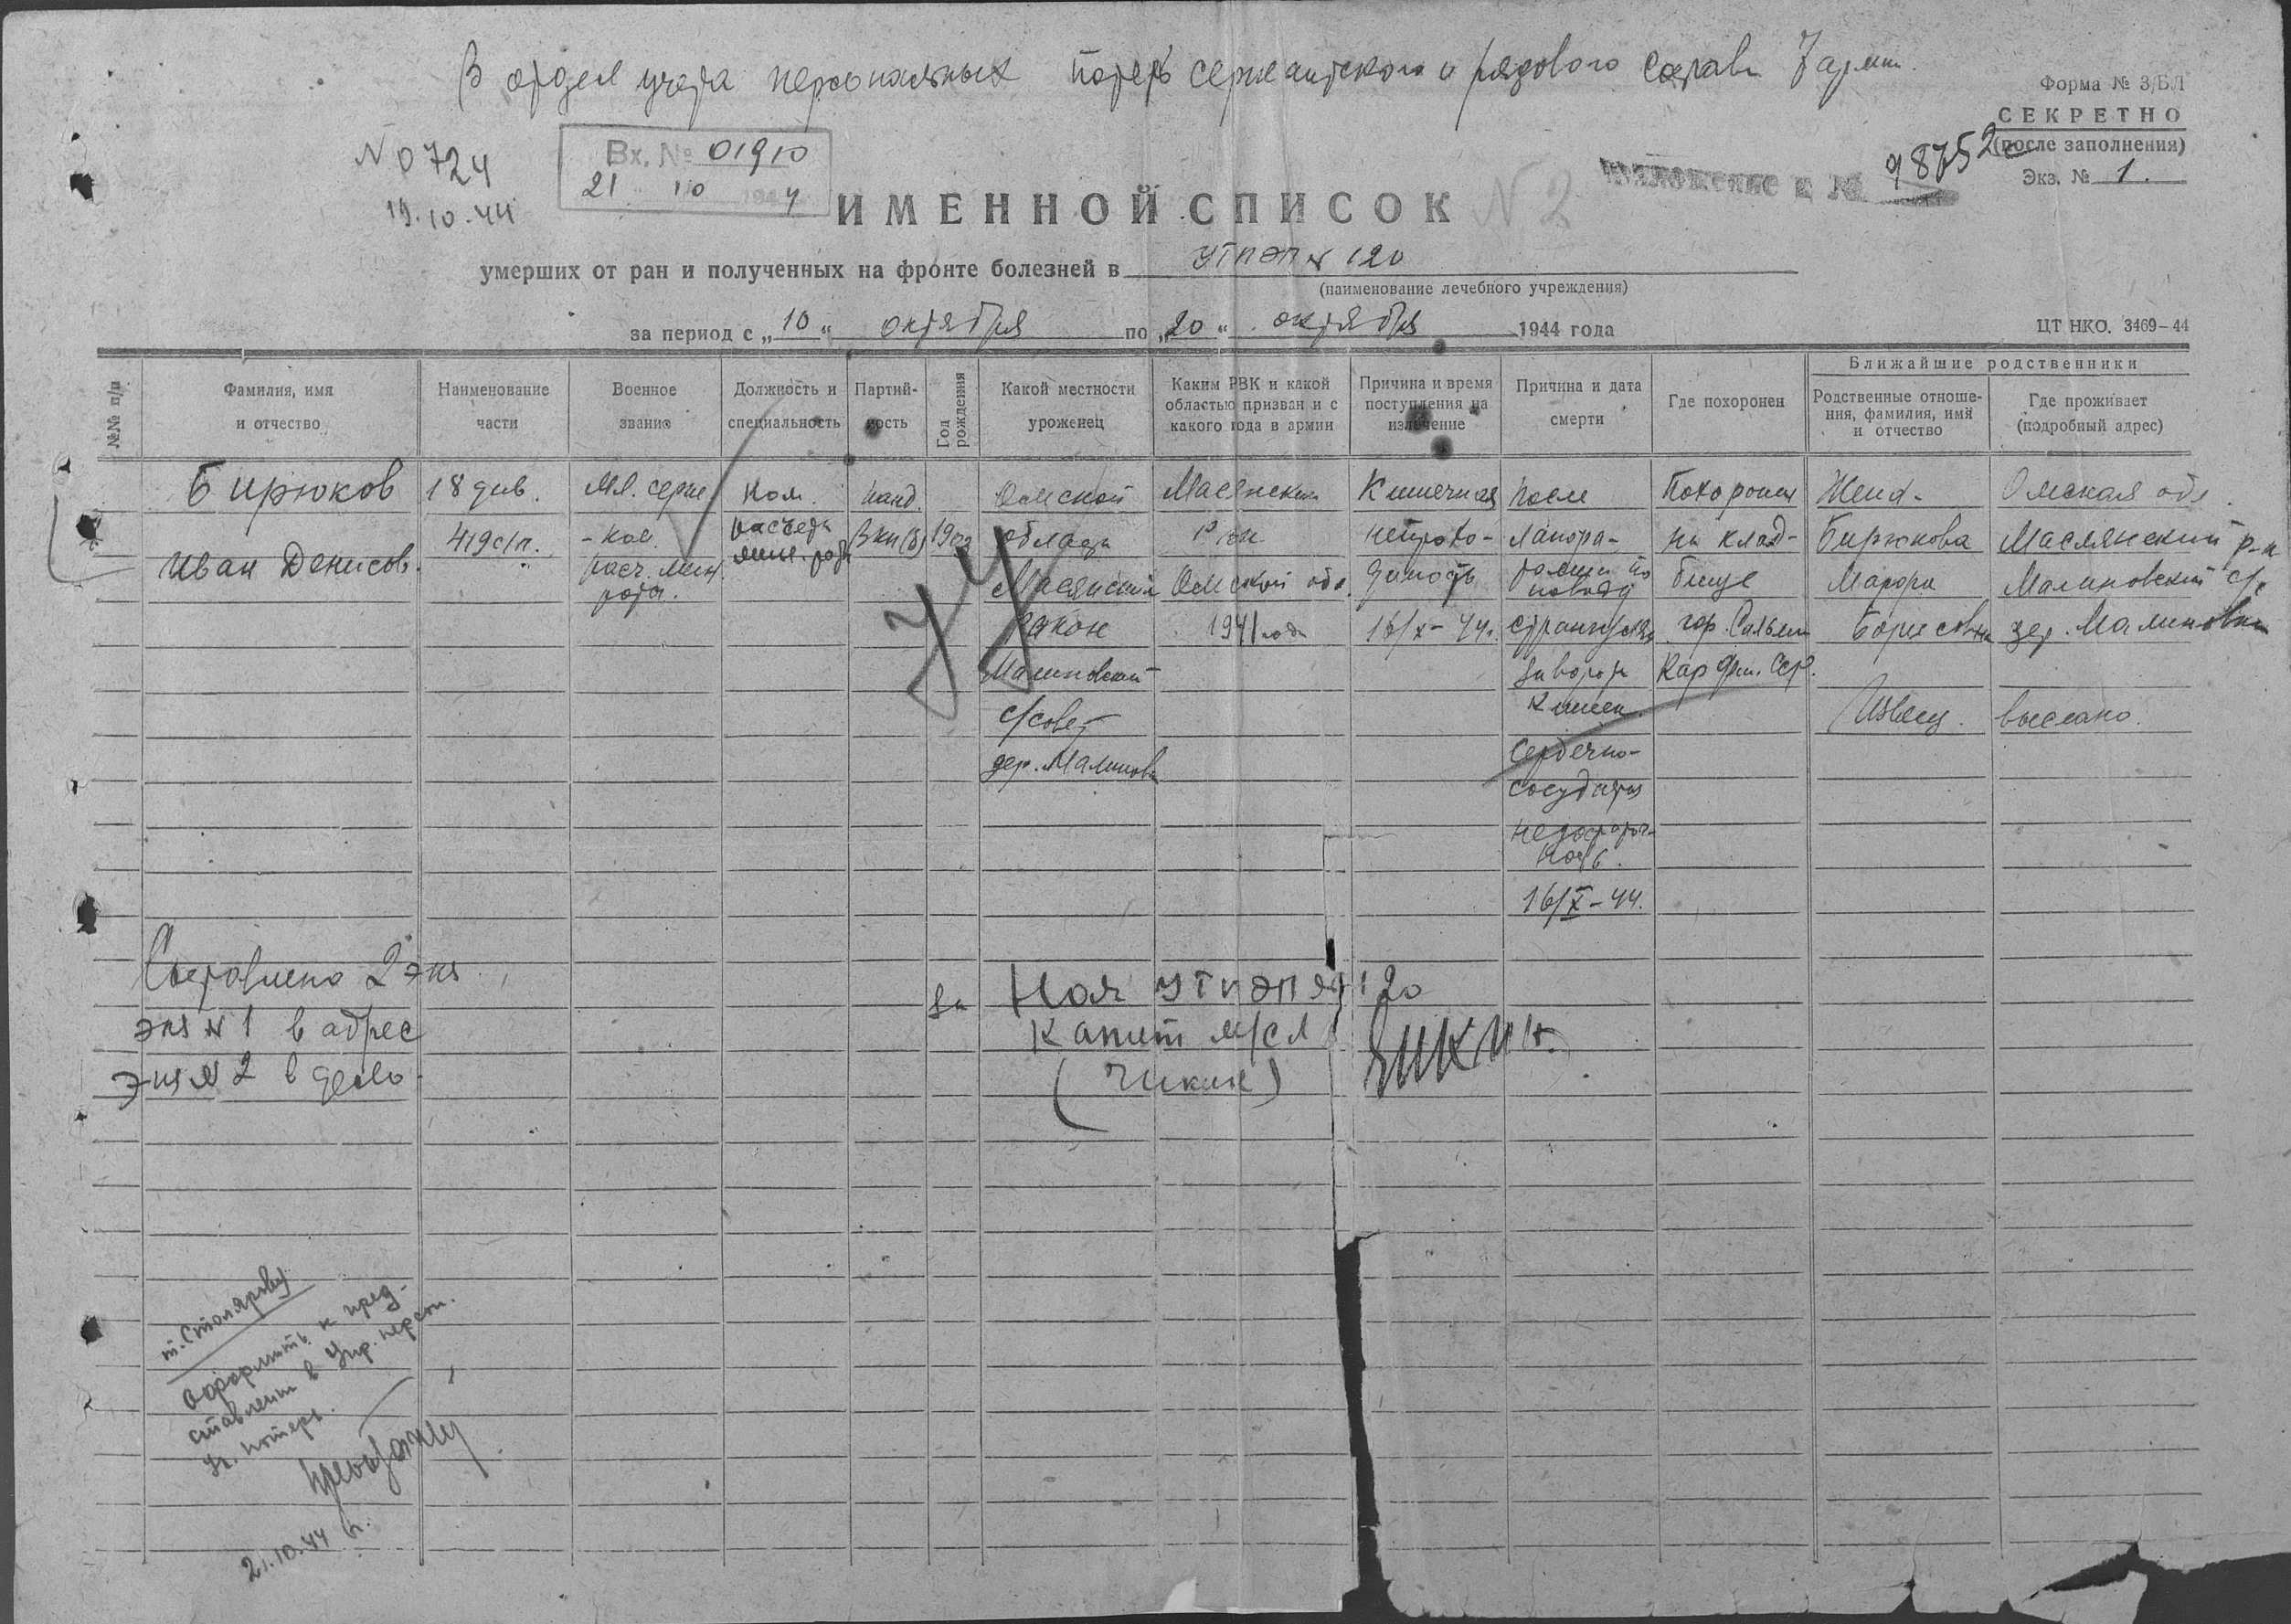 В отдел учета персональных потерь сержантского и рядового состава 7 арми
Форма № 3/БЛ
СЕКРЕТНО
(после заполнения)
Экз. № 1.
N 0724
19.10.44
Вх. № 01910
21 10 1944
Приложение к № 98752с
ИМЕННОЙ СПИСОК N 2
умерших от ран и полученных на фронте болезней в УГПЭП N 120
(наименование лечебного учреждения)
за период с „10“ октября по „20“ октября 1944 года
ЦТ НКО. 3469-44
№№ п/п
Фамилия, имя
и отчество
Наименование
части
Военное
звание
Должность и
специальность
Партий-
ность
Год
рождения
Какой местности
уроженец
Каким РВК и какой
областью призван и с
какого года в армии
Причина и время
поступления на
излечение
Причина и дата
смерти
Где похоронен
Ближайшие родственники
Родственные отноше-
ния, фамилия, имя
и отчество
Где проживает
(подробный адрес)
Бирюков
Иван Денисов.
18 див.
419 с/п.
Мл. серж.
- ком.
расч. мин.
роты.
Ком.
расчета
мин. роты
канд.
ВКП(б)
Омской
области
Маслянский
район
Малиновский
с/совет
дер. Малиновка
Маслянским
Р-ом
Омской обл.
1941 года
Кишечная
непрохо-
димость
16/X-44г.
после
лапора-
томии по
поводу
странгуляц
заворота
кишек.
Сердечно-
сосудистая
недостаточ-
ность.
16/X-44.
Похоронен
на клад-
бище
гор. Сальми
Кар Фин. ССР.
Жена-
Бирюкова
Марфа
Борисовна
Омская обл.
Маслянский р-н
Малиновский с/с
дер. Малиновка
Извещ. выслано.
44
Составлено 2 экз
экз N 1 в адрес
экз N 2 в дело.
за Нач УГПЭП N 120
Капит м/сл
(Чикин) Чикин.
т. Столярову
Оформить к пред-
ставлению в Упр. персон.
уч. потерь.
21.10.44 г.